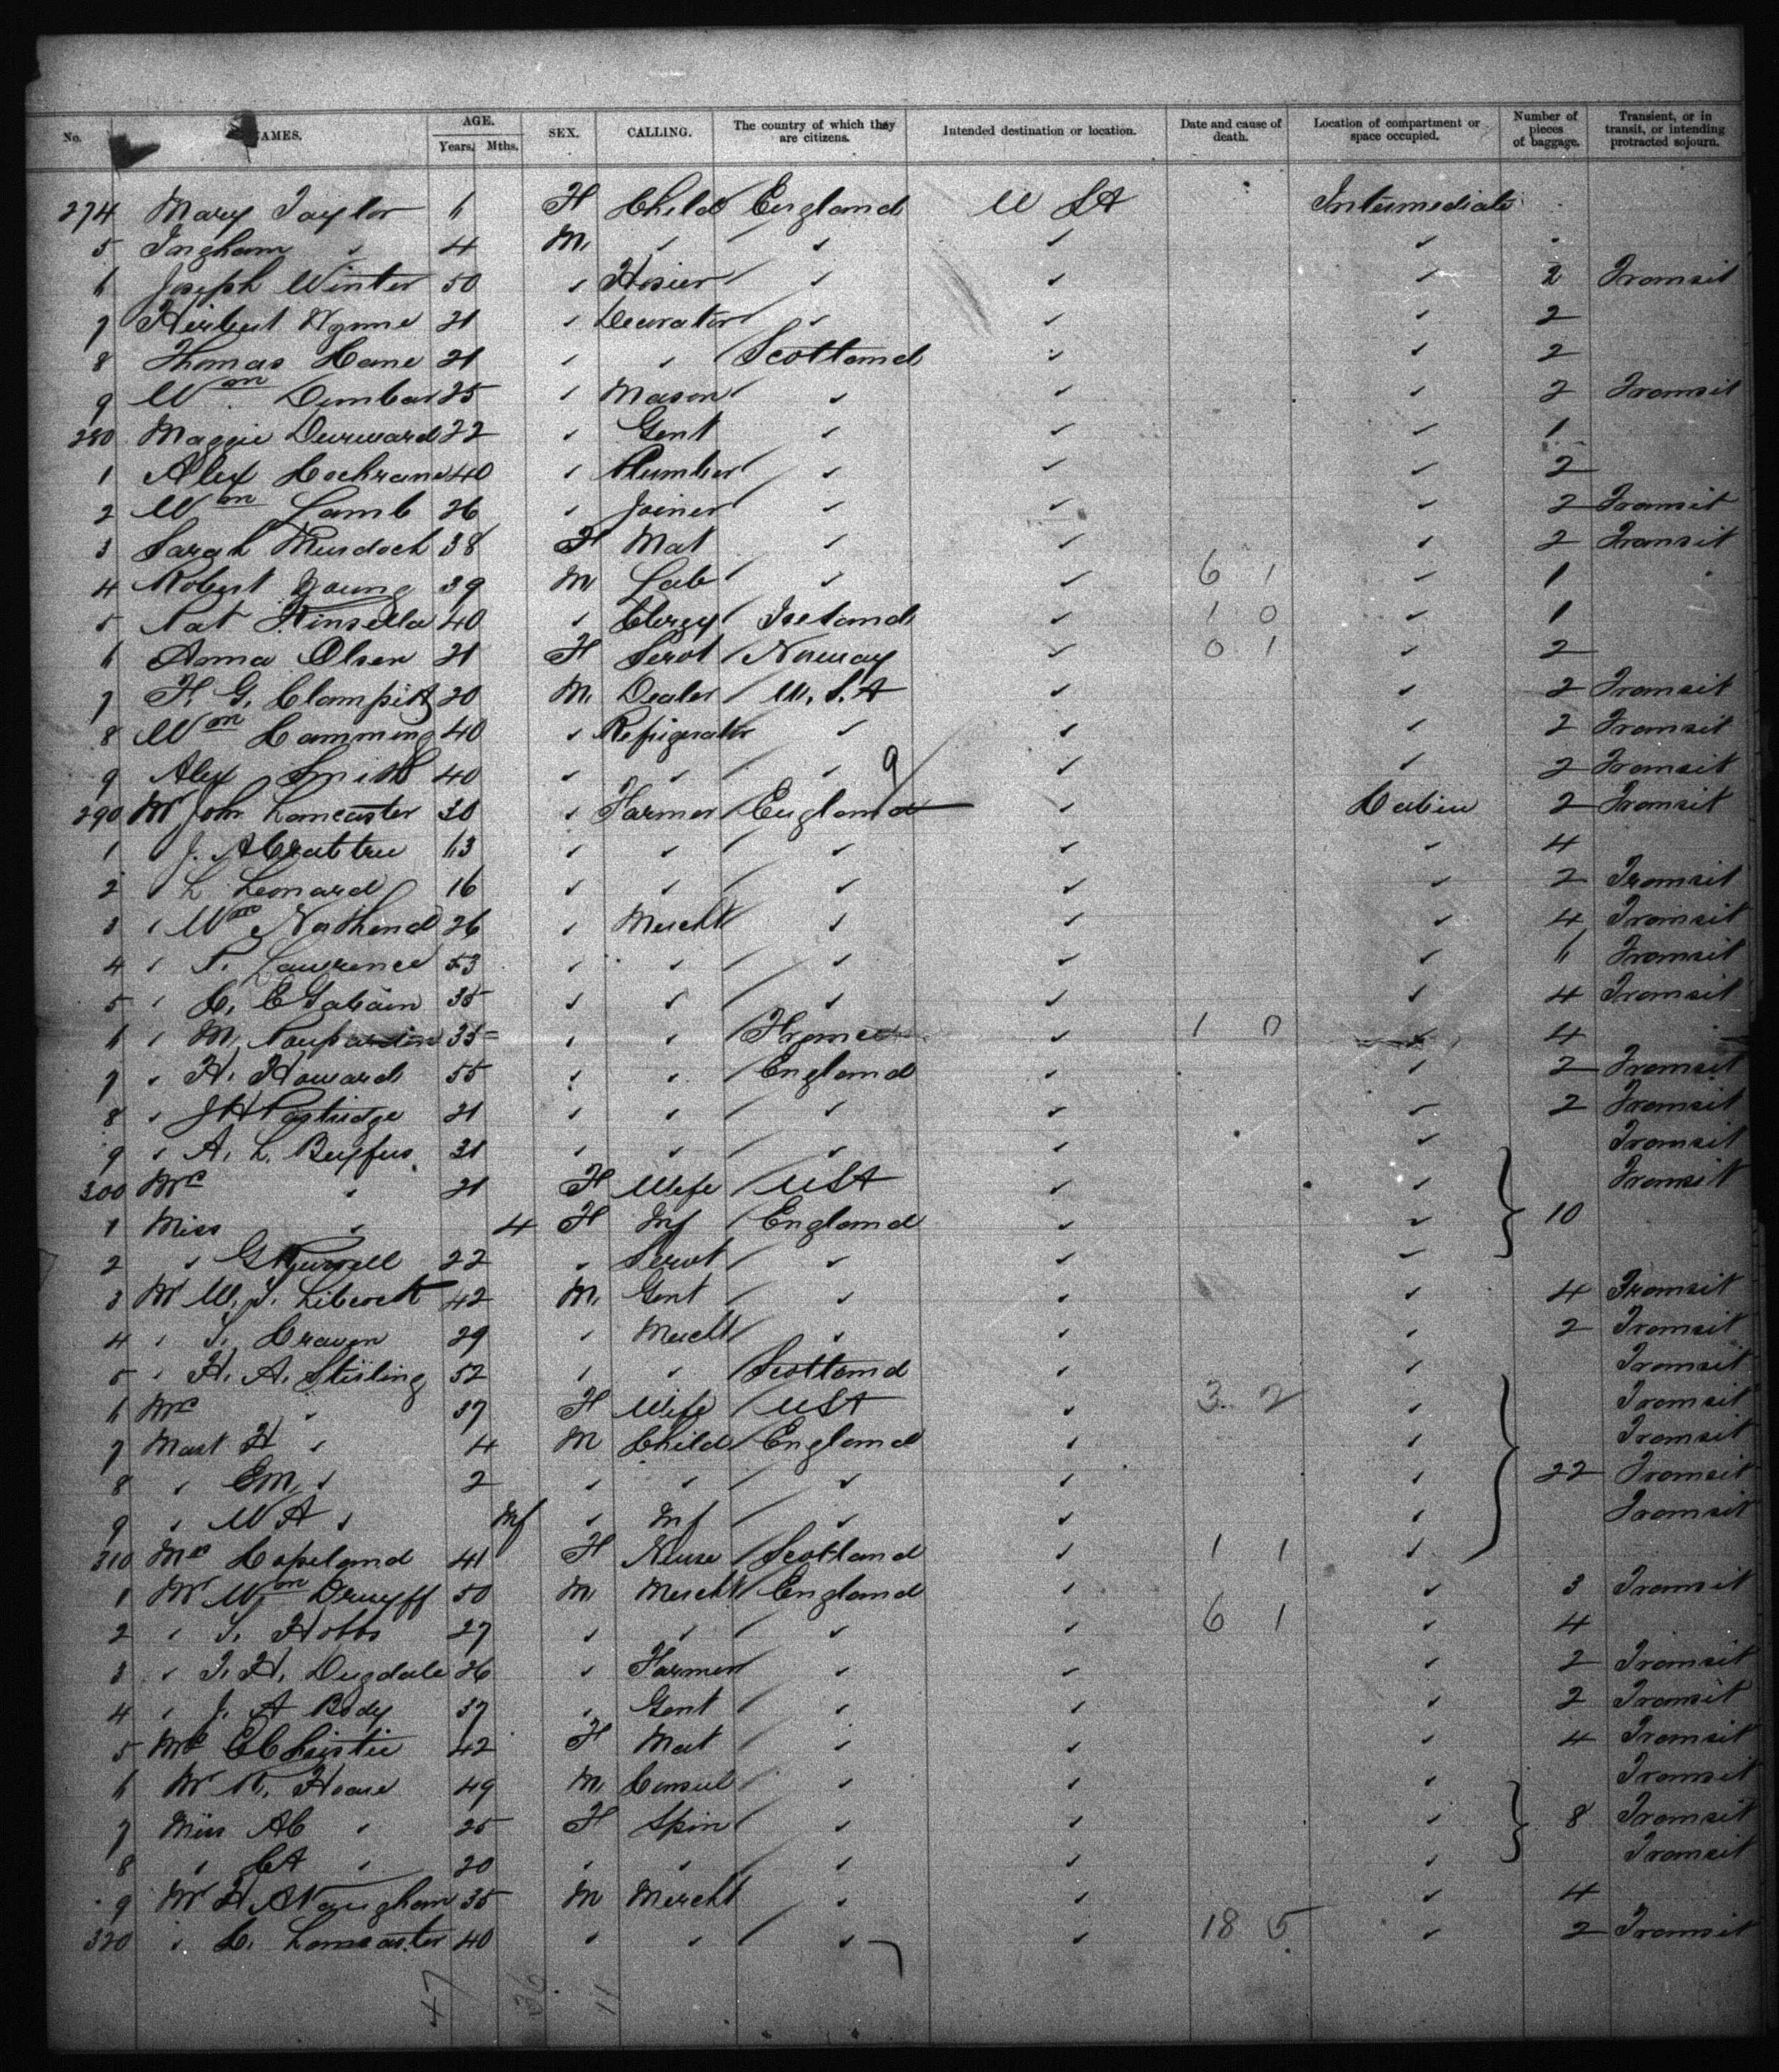 No. NAMES. AGE. Years. Mths. SEX. CALLING. The country of which they are citizens. Intended destination or location. Date and cause of death. Location of compartment or space occupied. Number of pieces of baggage. Transient, or in transit, or intending protracted sojourn.
274 Mary Taylor 6 F Child England U S A Intermediate
5 Ingham " 4 M " " " "
6 Joseph Winter 50 " Hosier " " " 2 Transit
7 Herbert Wynne 21 " Decorator " " " 2
8 Thomas Cane 21 " " Scotland " " 2
9 Wm Dunbar 25 " Mason " " " 2 Transit
280 Maggie Durward 22 " Gent " " " 1
1 Alex Cochrane 40 " Plumber " " " 2
2 Wm Lamb 26 " Joiner " " " 2 Transit
3 Sarah Murdoch 38 F Mat " " " 2 Transit
4 Robert Young 39 M Lab " " 6 1 " 1
5 Pat Kinsella 40 " Clergy Ireland " 1 0 " 1
6 Anna Olsen 21 F Servt Norway " 0 1 " 2
7 F. G. Clampitt 20 M Dealer U.S.A " " 2 Transit
8 Wm Camming 40 " Refrigerator " " " 2 Transit
9 Alex Smith 40 " " " 9 " " 2 Transit
290 Mr John Lancaster 30 " Farmer England " Cabin 2 Transit
1 " J. A Crabtree 63 " " " " " 4
2 " L Leonard 16 " " " " " 2 Transit
3 " Wm Northend 26 " Mercht " " " 4 Transit
4 " Lawrence 53 " " " " " 6 Transit
5 " C. E Gabain 35 " " " " " 4 Transit
6 " M. 35 " " France " 1 0 " 4
7 " H. Howard 55 " " England " " 2 Transit
8 " J H Partridge 21 " " " " " 2 Transit
9 " A. L. Beyfus 31 " " " " " Transit
300 Mrs " 21 F Wife USA " " Transit
1 Miss " 4 F Inf England " " 10
2 " G 22 " Servt " " "
3 Mr W. T. 42 M Gent " " " 4 Transit
4 " T. Craven 29 " Mercht " " " 2 Transit
5 " H. A. Stirling 52 " " Scotland " " Transit
6 Mrs " 37 F Wife USA " 3 2 " Transit
7 Mast H " 4 M Child England " " Transit
8 " E M " 2 " " " " " 22 Transit
9 " W A " Inf " Inf " " " Transit
310 Mrs Copeland 41 F Nurse Scotland " 1 1 "
1 Mr Wm 50 M Mercht England " " 3 Transit
2 " T. Hobbs 27 " " " " 6 1 " 4
3 " T. H. Dugdale 26 " Farmer " " " 2 Transit
4 " J. A Body 37 " Gent " " " 2 Transit
5 Mrs E Christie 42 F Mat " " " 4 Transit
6 Mr R. Hoare 49 M Consul " " " Transit
7 Miss A C " 25 F Spin " " " 8 Transit
8 " C A " 20 " " " " " Transit
9 Mr H. A Vaugham 35 M Mercht " " " 4
320 " C. Lancaster 40 " " " " 18 5 " 2 Transit
47 11